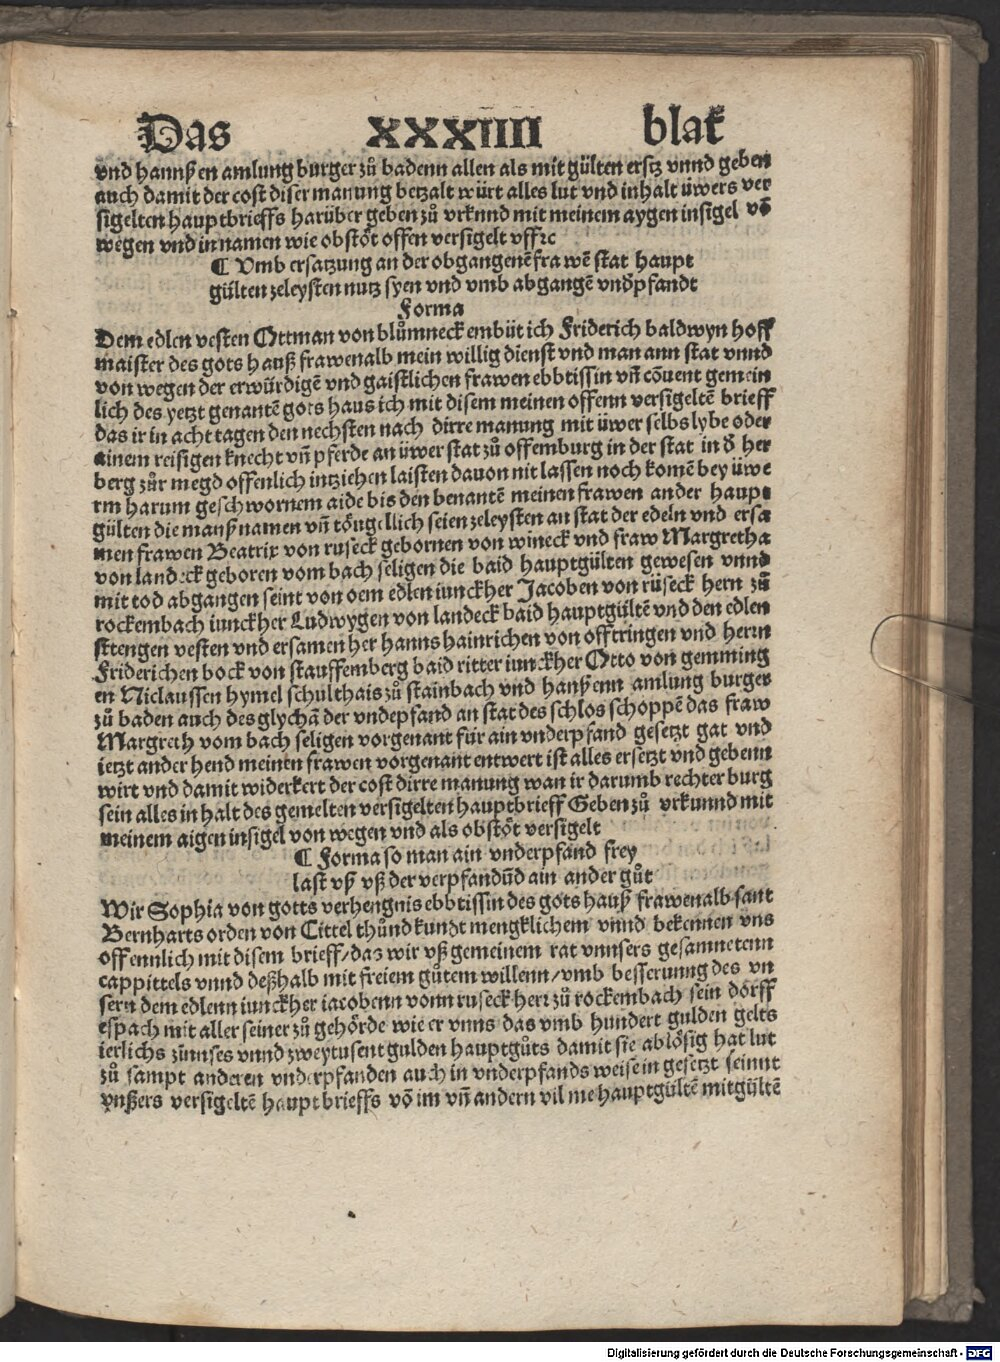 Das XXXIIII blat
vnd hannßen amlung burger zů badenn allen als mit gülten erstz vnnd geben
auch damit der cost diser manung betzalt würt alles lut vnd inhalt üwers ver
sigelten hauptbrieffs harüber geben zů vrknnd mit meinem aygen insigel vō
wegen vnd in namen wie obstöt offen versigelt vff ⁊c
¶ Vmb ersatzung an der obgangenē frawē stat haupt
gülten zeleysten nutz syen vnd vmb abgangē vnd̄pfandt
Forma
Dem edlen vesten Ottman von blůmneck embüt ich Friderich baldwyn hoff
maister des gots hauß frawenalb mein willig dienst vnd man ann stat vnnd
von wegen der erwürdigē vnd gaistlichen frawen ebbtissin vñ cōuent gemein
lich des yetzt genantē gots haus ich mit disem meinen offenn versigeltē brieff
das ir in acht tagen den nechsten nach dirre manung mit üwer selbs lybe oder
ainem reisigen knecht vñ pferde an üwer stat zů offemburg in der stat in d̄ her
berg zůr megd offenlich intziehen laisten dauon nit lassen noch komē bey üwe
rm harum geschwornem aide bis den benantē meinen frawen ander haupt
gülten die manßnamen vñ töugellich seien zeleysten an stat der edeln vnd ersa
men frawen Beatrix von ruseck gebornen von wineck vnd fraw Margretha
von landeck geboren vom bach seligen die baid hauptgülten gewesen vnnd
mit tod abgangen seint von dem edlen iunckher Jacoben von rüseck hern zů
rockembach iunckher Ludwygen von landeck baid hauptgültē vnd den edlen
sttengen vesten vnd ersamen her hanns hainrichen von offtringen vnd herrn
Friderichen bock von stauffemberg baid ritter iunckher Otto von gemming
en Niclaussen hymel schulthais zů stainbach vnd hanßenn amlung burger
zů baden auch des glychā der vndepfand an stat des schlos schoppē das fraw
Margreth vom bach seligen vorgenant für ain vnderpfand gesetzt gat vnd
ietzt ander hend meinen frawen vorgenant entwert ist alles ersetzt vnd gebenn
wirt vnd damit widerkert der cost dirre manung wan ir darumb rechter burg
sein alles in halt des gemelten versigelten hauptbrieff Geben zů vrkunnd mit
meinem aigen insigel von wegen vnd als obstöt versigelt
¶ Forma so man ain vnderpfand frey
last vß vß der verpfandūd ain ander gůt
Wir Sophia von gotts verhengnis ebbtissin des gots hauß frawenalb sant
Bernharts orden von Cittel thůnd kundt mengklichem vnnd bekennen vns
offennlich mit disem brieff/das wir vß gemeinem rat vnnsers gesamnetenn
cappittels vnnd deßhalb mit freiem gůtem willenn/vmb besserunng des vn
sern dem edlenn iunckher iacobenn vonn ruseck herr zů rockembach sein dörff
espach mit aller seiner zů gehörde wie er vnns das vmb hundert gulden gelts
ierlichs zünnses vnnd zweytusent gulden hauptgůts damit sie ablößig hat lut
zů sampt anderen vnderpfanden auch in vnderpfands weise in gesetzt seinnt
vnßers versigeltē hauptbrieffs vō im vñ andern vil me hauptgültē mitgültē
Digitalisierung gefördert durch die Deutsche Forschungsgemeinschaft - DFG